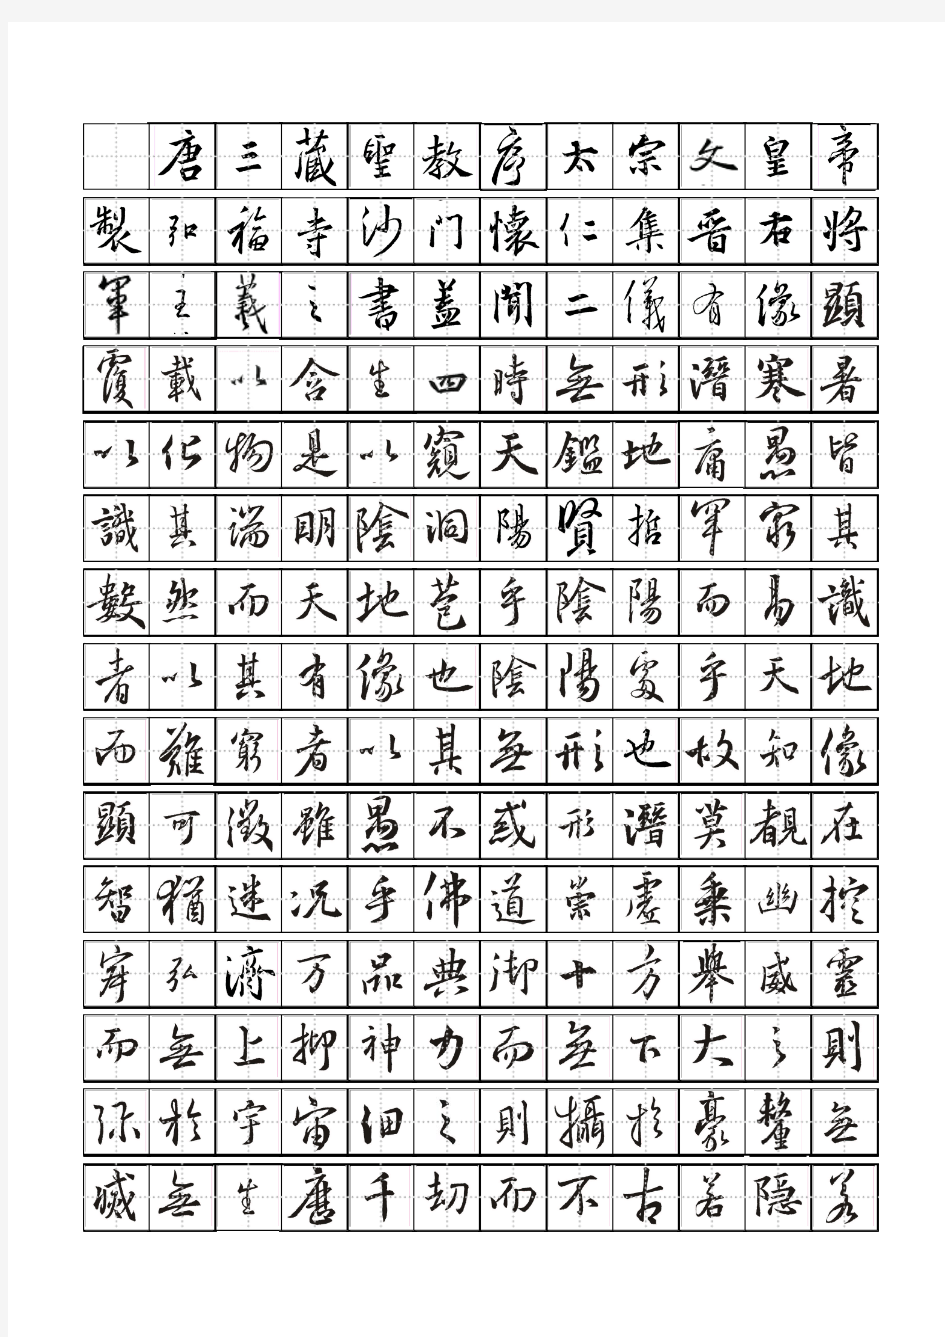 唐三藏聖教序太宗文皇帝
製弘福寺沙門懷仁集晉右將
軍王羲之書蓋聞二儀有像顯
覆載以含生四時無形潛寒暑
以化物是以窺天鑑地庸愚皆
識其端明陰洞陽賢哲罕窮其
數然而天地苞乎陰陽而易識
者以其有像也陰陽處乎天地
而難窮者以其無形也故知像
顯可徵雖愚不惑形潛莫覩在
智猶迷況乎佛道崇虛乘幽控
寂弘濟万品典御十方舉威靈
而無上抑神力而無下大之則
彌於宇宙細之則攝於豪釐無
滅無生歷千劫而不古若隱若